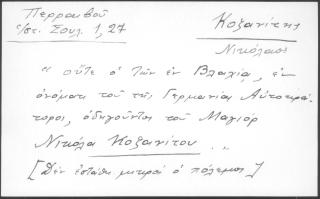 Περραιβοῦ
Ἱστ. Σουλ. 1, 27
Κοζανίτης
Νικόλαος
"οὔτε ὁ τῶν ἐν Βλαχίᾳ, ἐν
ὀνόματι τοῦ τῆς Γερμανίας Αὐτοκρά-
τορος, ὁδηγοῦντος τοῦ Μαγιὸρ
Νικόλα Κοζανίτου ...
[Δὲν ἐστάθη μικρὸς ὁ πόλεμος]